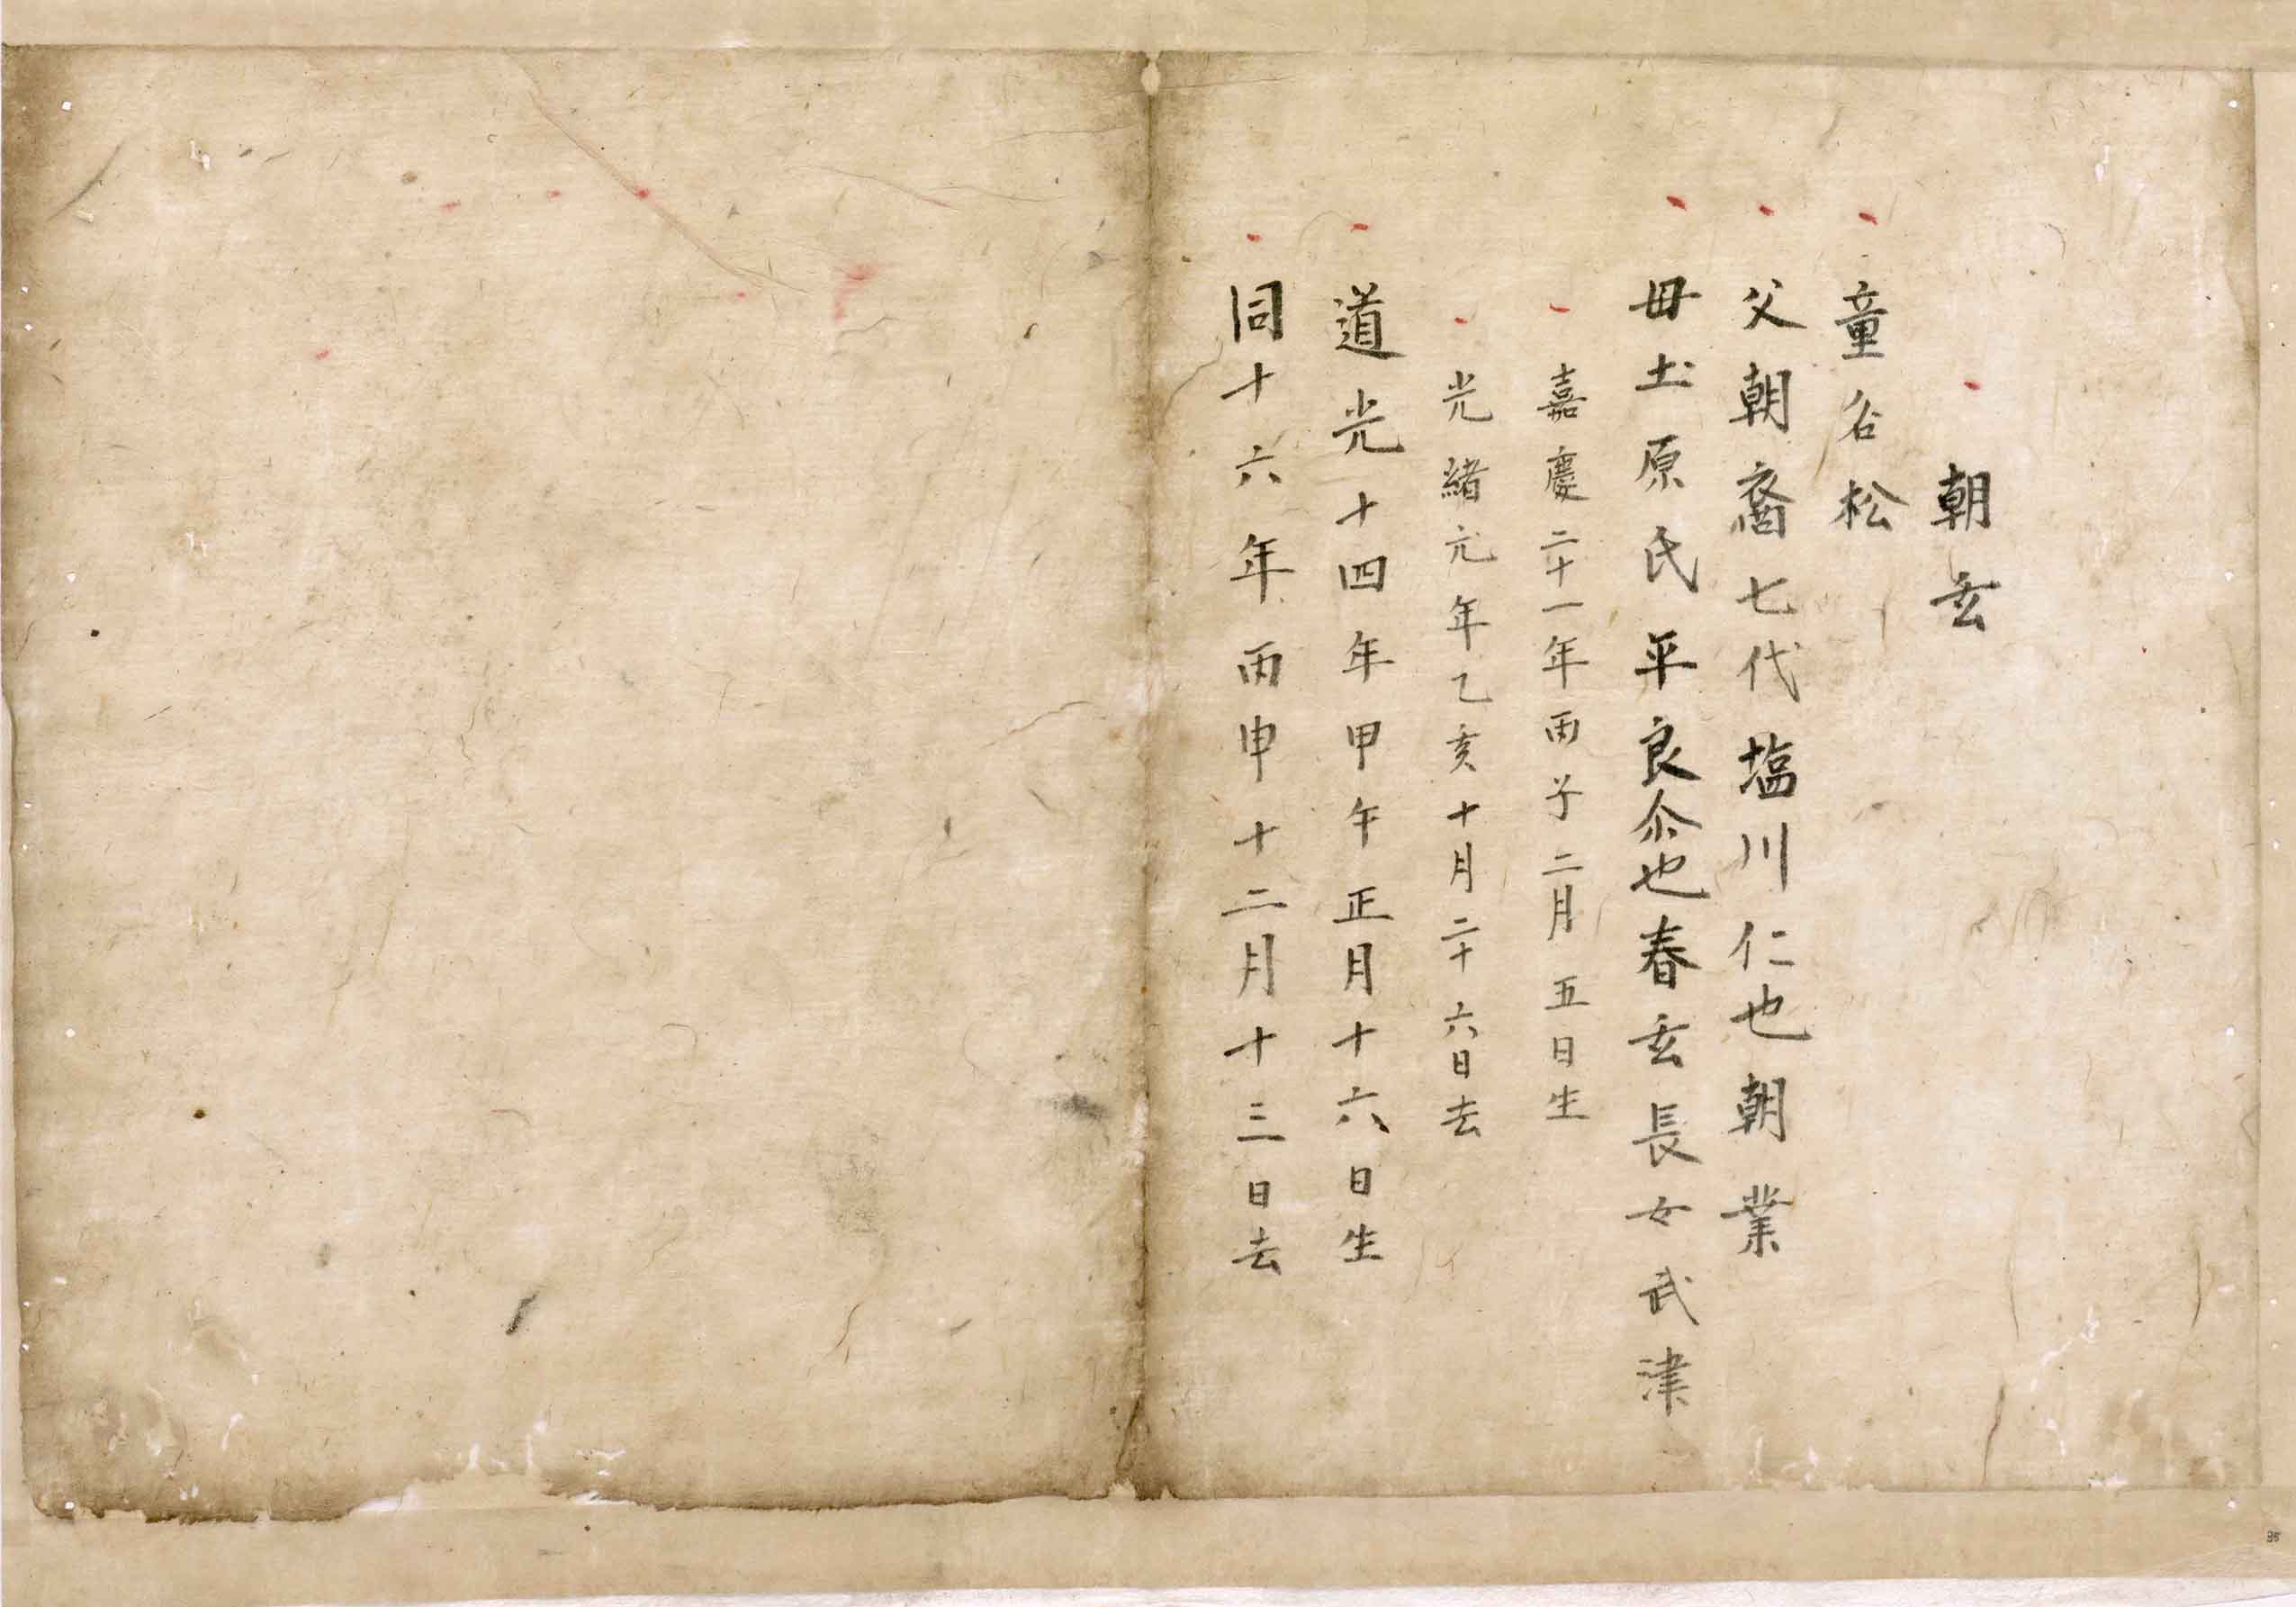 朝玄
童名松
父朝裔七代塩川仁也朝業
母土原氏平良尒也春玄長女武津
嘉慶二十一年丙子二月五日生
光緒元年乙亥十月二十六日去
道光十四年甲午正月十六日生
同十六年丙申十二月十三日去